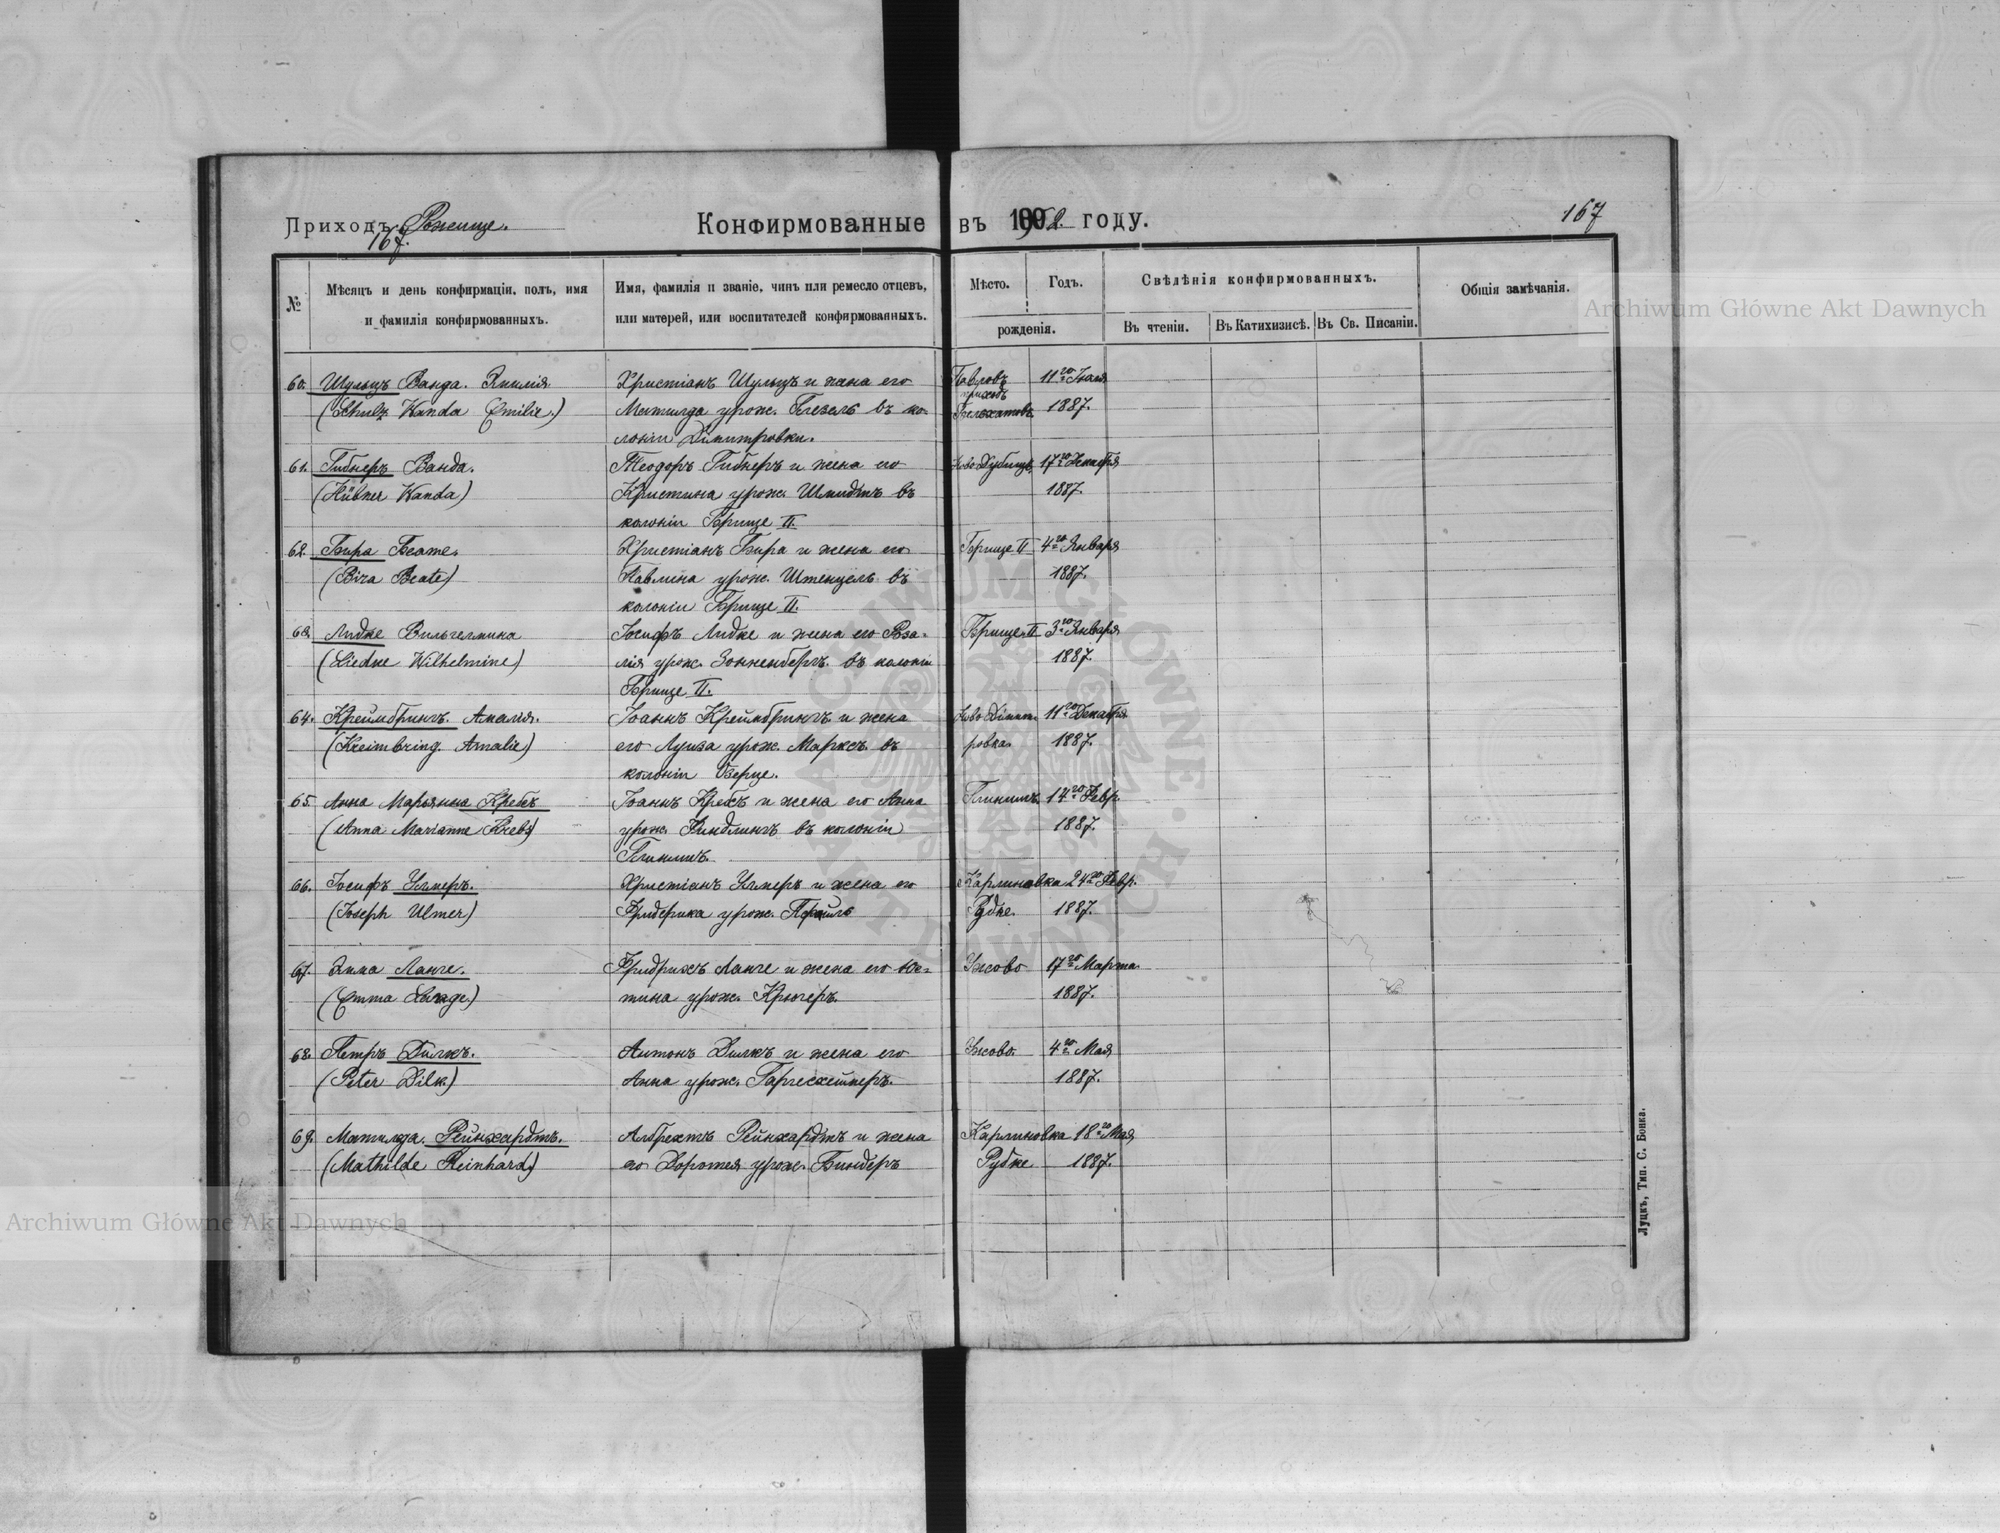 Приходъ Рожище. Конфирмованные въ 1902. году. 167
167.
№ Мѣсяцъ и день конфирмаціи, полъ, имя и фамилія конфирмованныхъ. Имя, фамилія и званіе, чинъ или ремесло отцевъ, или матерей, или воспитателей конфирмованныхъ. Мѣсто. Годъ. рожденія. Свѣдѣнія конфирмованныхъ. Въ чтеніи. Въ Катихизисѣ. Въ Св. Писаніи. Общія замѣчанія.
60. Шульцъ Ванда Эмилія Христіанъ Шульцъ и жена его 11го
приходъ
(Schulz Wanda Emilie.) Матилда урож. въ ко- 1887.
лоніи Димитровки.
61. Гибнеръ Ванда. Теодоръ Гибнеръ и жена его 17го
(Hübner Wanda) Христина урож. Шмидтъ въ 1887.
колоніи Брище II.
62. Бира Беате. Христіанъ Бира и жена его Брище II 4го Января
(Bira Beate) Павлина урож. Штенцель въ 1887.
колоніи Брище II.
63. Лидке Вильгелмина Іосифъ Лидке и жена его Роза- Брище II 3го Января
(Liedke Wilhelmine) лія урож. Зонненбергъ въ колоніи 1887.
Брище II.
64. Креймбрингъ Амалія. Іоаннъ Креймбрингъ и жена Ново Димит- 11го Декабря
(Kreimbring Amalie) его Луиза урож. Марксъ въ ровка 1887.
колоніи Озерце.
65. Анна Марьянна Кребсъ Іоаннъ Кребсъ и жена его Анна 14го Февр.
(Anna Marianne Krebs) урож. въ колоніи 1887.
66. Іосифъ Улмеръ. Христіанъ Улмеръ и жена его Карлиновка 24го Февр.
(Joseph Ulmer) Фридерика урож. Рудке. 1887.
67. Эмма Ланге. Фридрихъ Ланге и жена его Юс- Ужово 17го Марта
(Emma Lange) тина урож. Крюгеръ. 1887.
68. Петръ Дилкъ. Антонъ Дилкъ и жена его Ужово 4го Мая
(Peter Dilk.) Анна урож. Гаргесхеймеръ. 1887.
69. Матилда Рейнхардтъ. Албрехтъ Рейнхардтъ и жена Карлиновка 18го Мая
(Mathilde Reinhard) его Доротея урож. Биндеръ Рудке 1887.
Луцкъ, Тип. С. Бонка.
Archiwum Główne Akt Dawnych
Archiwum Główne Akt Dawnych
ARCHIWUM GŁÓWNE AKT DAWNYCH